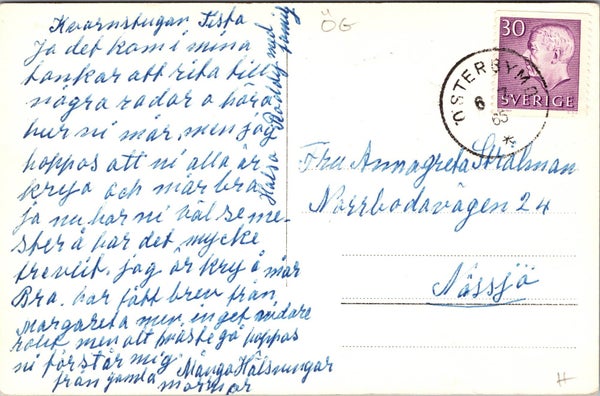 Kvarnstugan, Sista
Ja det kom i mina
tankar att rita till
några radar o höra
hur ni mår, men jag
hoppas att ni alla är
krya och mår bra
ja nu har ni väl seme-
ster å har det mycke
trevlit. jag är kry å mår
Bra. har fått brev från
Margareta men inget vidare
rolit men alt måste gå hoppas
ni förstår mig
Många Hälsningar
från gamla mormor
Hälsa Roddby med
familj
ÖG
30
SVERIGE
ÖSTERBYMO
6
65
Fru Annagreta Stålman
Norrbodavägen 24
Nässjö
H